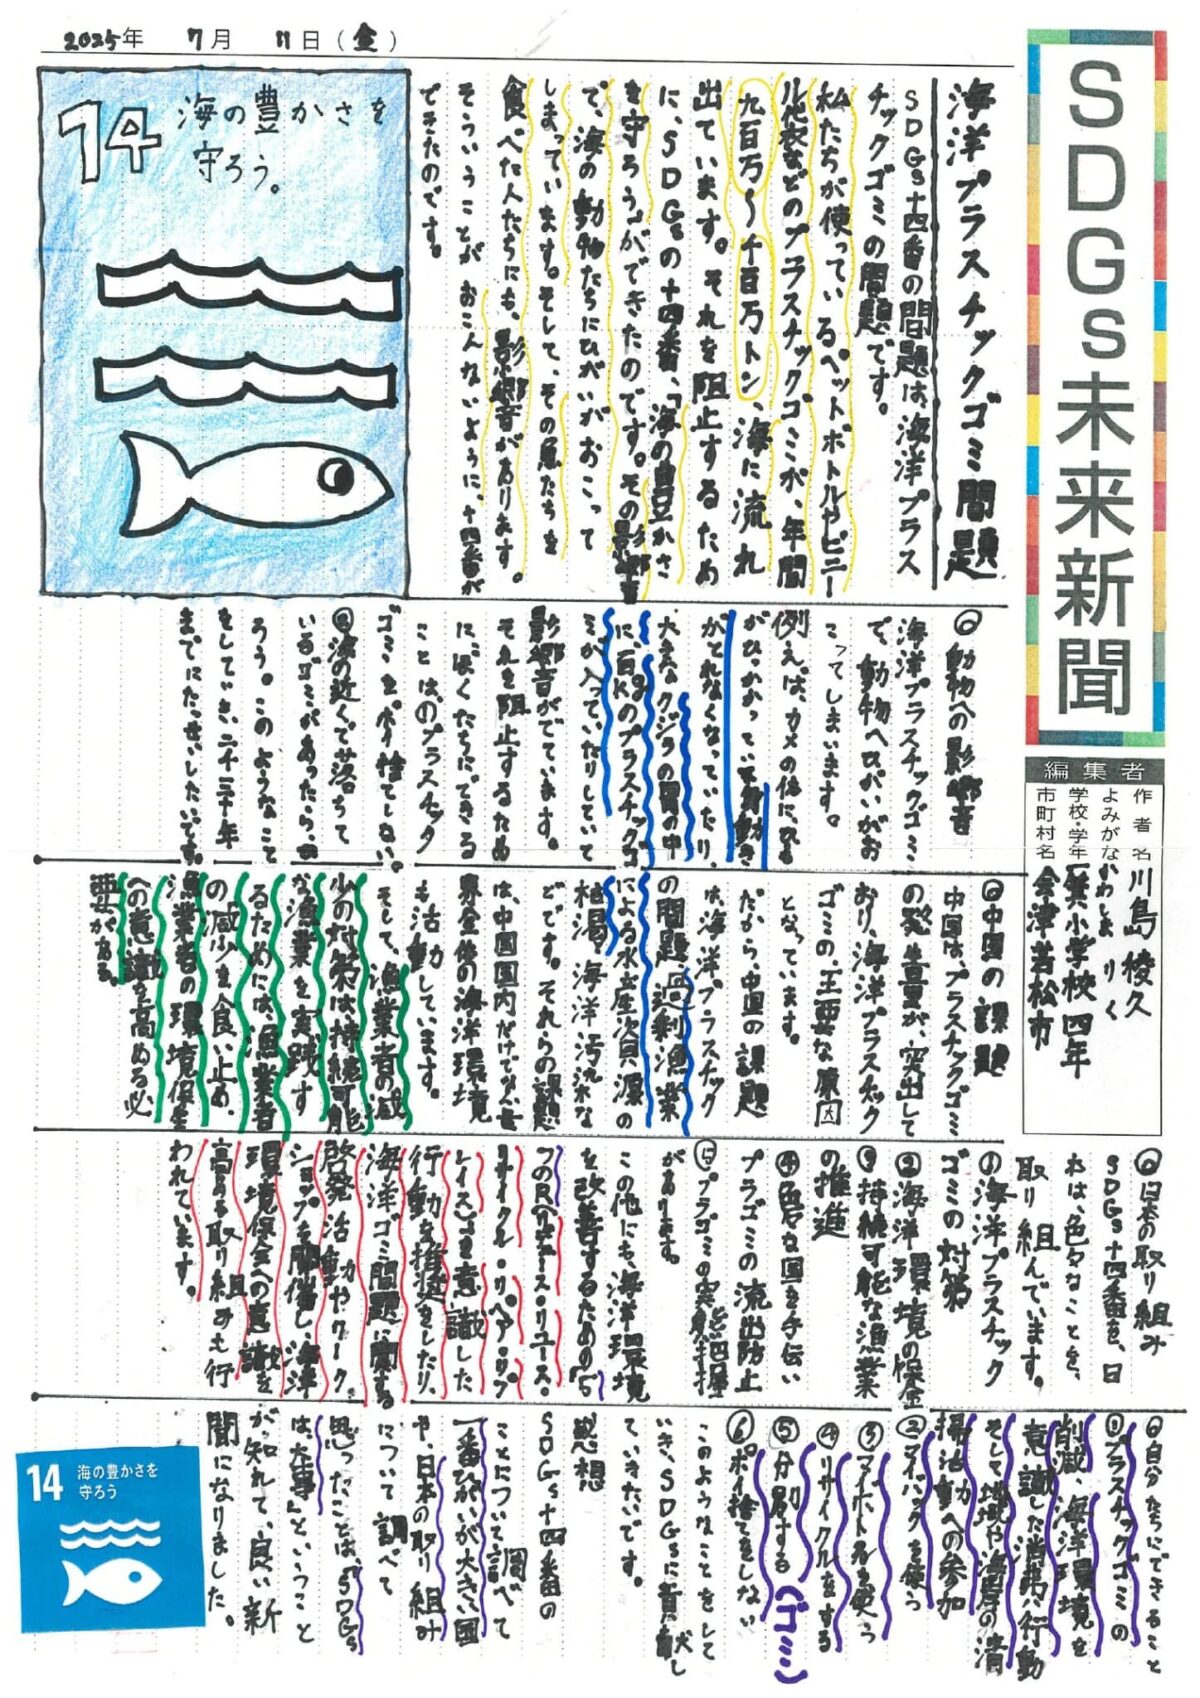 2025年 7月 11日(金)
SDGs未来新聞
編集者
作者名 川島 稜久
よみがな かわしま りく
学校・学年 一箕小学校 四年
市町村名 会津若松市
海洋プラスチックゴミ問題
SDGs十四番の問題は海洋プラス
チックゴミの問題です。
私たちが使っているペットボトルやビニー
ル袋などのプラスチックゴミが、年間
九百万〜千百万トン、海に流れ
出ています。それを阻止するため
に、SDGsの十四番、「海の豊かさ
を守ろう」ができたのです。その影響
で、海の動物たちにひがいがおこって
しまっています。そして、その魚たちを
食べた人たちにも、影響があります。
そういうことがおこらないように、十四番が
できたのです。
14 海の豊かさを
守ろう。
◎動物への影響
海洋プラスチックゴミ
で、動物へひがいがお
こってしまいます。
例えば、カメの体にひも
がひっかかっていて身動き
がとれなくなっていたり、
大きなクジラの胃の中
に、百kgのプラスチックゴ
ミが入っていたりしていて
影響がでています。
それを阻止するため
に、ぼくたちにできる
ことは、①プラスチック
ゴミをポイ捨てしない。
②海の近くで落ちて
いるゴミがあったら、ひ
ろう。このようなこと
をしていき、二千三十年
までにたっせいしたいです。
◎中国の課題
中国は、プラスチックゴミ
の発生量が、突出して
おり、海洋プラスチック
ゴミの、主要な原因
となっています。
だから、中国の課題
は、海洋プラスチック
の問題、過剰漁業
による水産資源の
枯渇、海洋汚染な
どです。それらの課題
は、中国国内だけでなく世
界全体の海洋環境
も活動しています。
そして、漁業者の減
少の対策は持続可能
な漁業を実践す
るためには、漁業者
の減少を食い止め、
漁業者の環境保全
への意識を高める必
要がある。
◎日本の取り組み
SDGs十四番を、日
本は、色々なことを、
取り組んでいます。
①海洋プラスチック
ゴミの対策
②海洋環境の保全
③持続可能な漁業
の推進
④色々な国を手伝い
プラゴミの流出防止
⑤プラゴミの実態把握
があります。
この他にも、海洋環境
を改善するための「5
つのR(リデュース・リユース・
リサイクル・リペア・リプ
レイス)」を意識した
行動を推進をしたり、
海洋ゴミ問題に関する
啓発活動やワーク
ショップを開催し、海洋
環境保全への意識を
高める取り組みも行
われています。
◎自分たちにできること
①プラスチックゴミの
削減、海洋環境を
意識した消費行動
そして地域や海岸の清
掃活動への参加
②マイバックを使う
③マイボトルを使う
④リサイクルをする
⑤分別する(ゴミ)
⑥ポイ捨てをしない
このようなことをして
いき、SDGsに貢献し
ていきたいです。
感想
SDGs十四番の
ことについて調べて
一番ひがいが大きい国
や、日本の取り組み
について調べて
思ったことは、「SDGs
は大事」ということ
が知れて、良い新
聞になりました。
14 海の豊かさを
守ろう